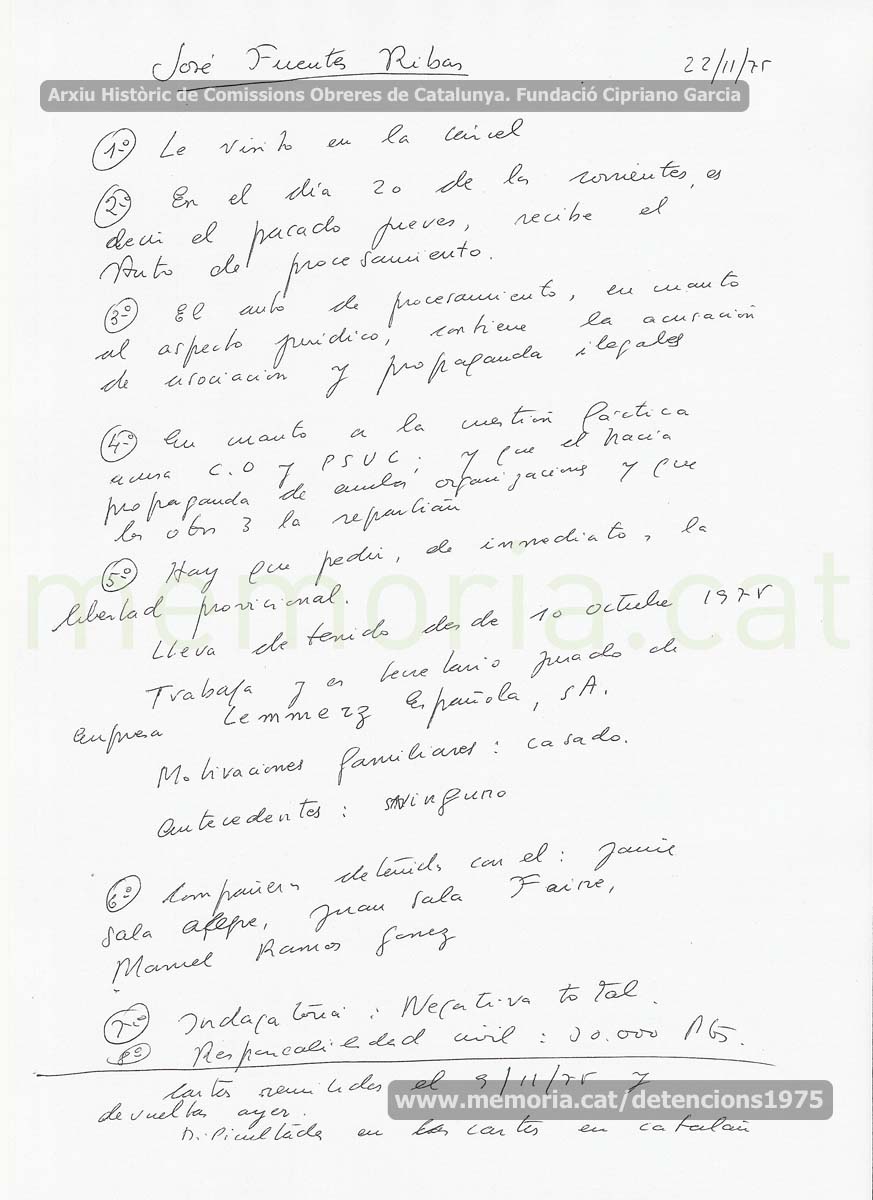 José Fuentes Ribas 22/11/75
Arxiu Històric de Comissions Obreres de Catalunya. Fundació Cipriano Garcia
1º Le visito en la cárcel
2º En el día 20 de los corrientes, es
decir el pasado jueves, recibe el
Auto de procesamiento.
3º El auto de procesamiento, en cuanto
al aspecto jurídico, contiene la acusación
de asociación y propaganda ilegales
4º En cuanto a la cuestión fáctica
acusa C.O y PSUC; y que el hacia
propaganda de ambas organizaciones y que
los otros 3 la repartian
5º Hay que pedir, de inmediato, la
libertad provicional.
memoria.cat
Lleva detenido desde 10 octubre 1975
Trabaja y es secretario jurado de
empresa Lemmerz Española, SA.
Motivaciones familiares: casado.
Antecedentes: ninguno
6º Compañeros detenidos con el: Jaime
Sala Alegre, Juan Sala Faine,
Manuel Ramos Gomez
7º Indagatoria: Negativa total.
8º Responcalidedad civil: 30.000 Pts.
Cartas remitidas el 9/11/75 y
devueltas ayer.
www.memoria.cat/detencions1975
Dificultades en las cartas en catalan